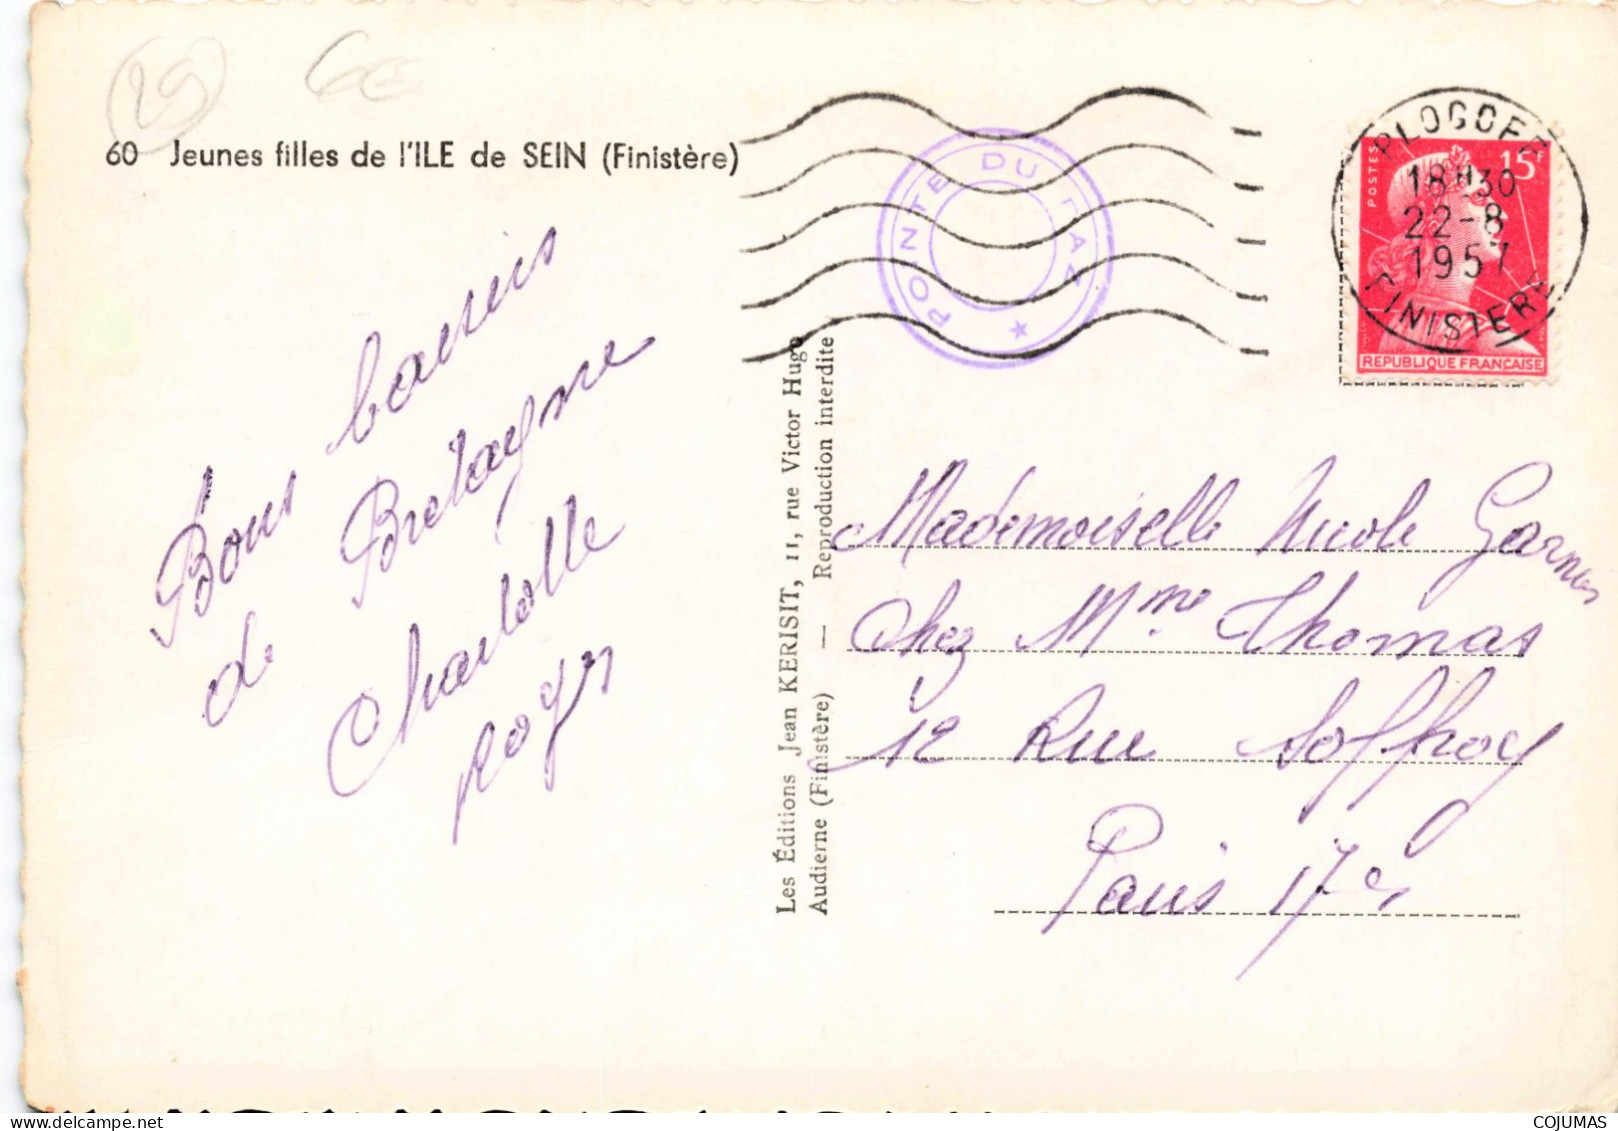 29 6€
60 Jeunes filles de l'ILE de SEIN (Finistère)
Bons baisers
de Bretagne
Charlotte
Roger
Les Éditions Jean KERISIT, 11, rue Victor Hugo
Audierne (Finistère) — Reproduction interdite
POINTE DU RAZ
PLOGOFF
18H30
22-8
1957
FINISTERE
POSTES
15F
REPUBLIQUE FRANÇAISE
Mademoiselle Nicole
Chez Mme Thomas
12 Rue Soffroy
Paris 17e
COJUMAS